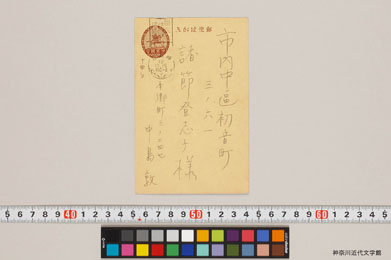 郵便はがき
市内中區初音町
三ノ六一
諸節登志子様
中島敦
5 6 7 8 9 40 1 2 3 4 5 6 7 8 9 50 1 2 3 4 5 6 7 8 9 60 1 2 3 4 5
神奈川近代文学館